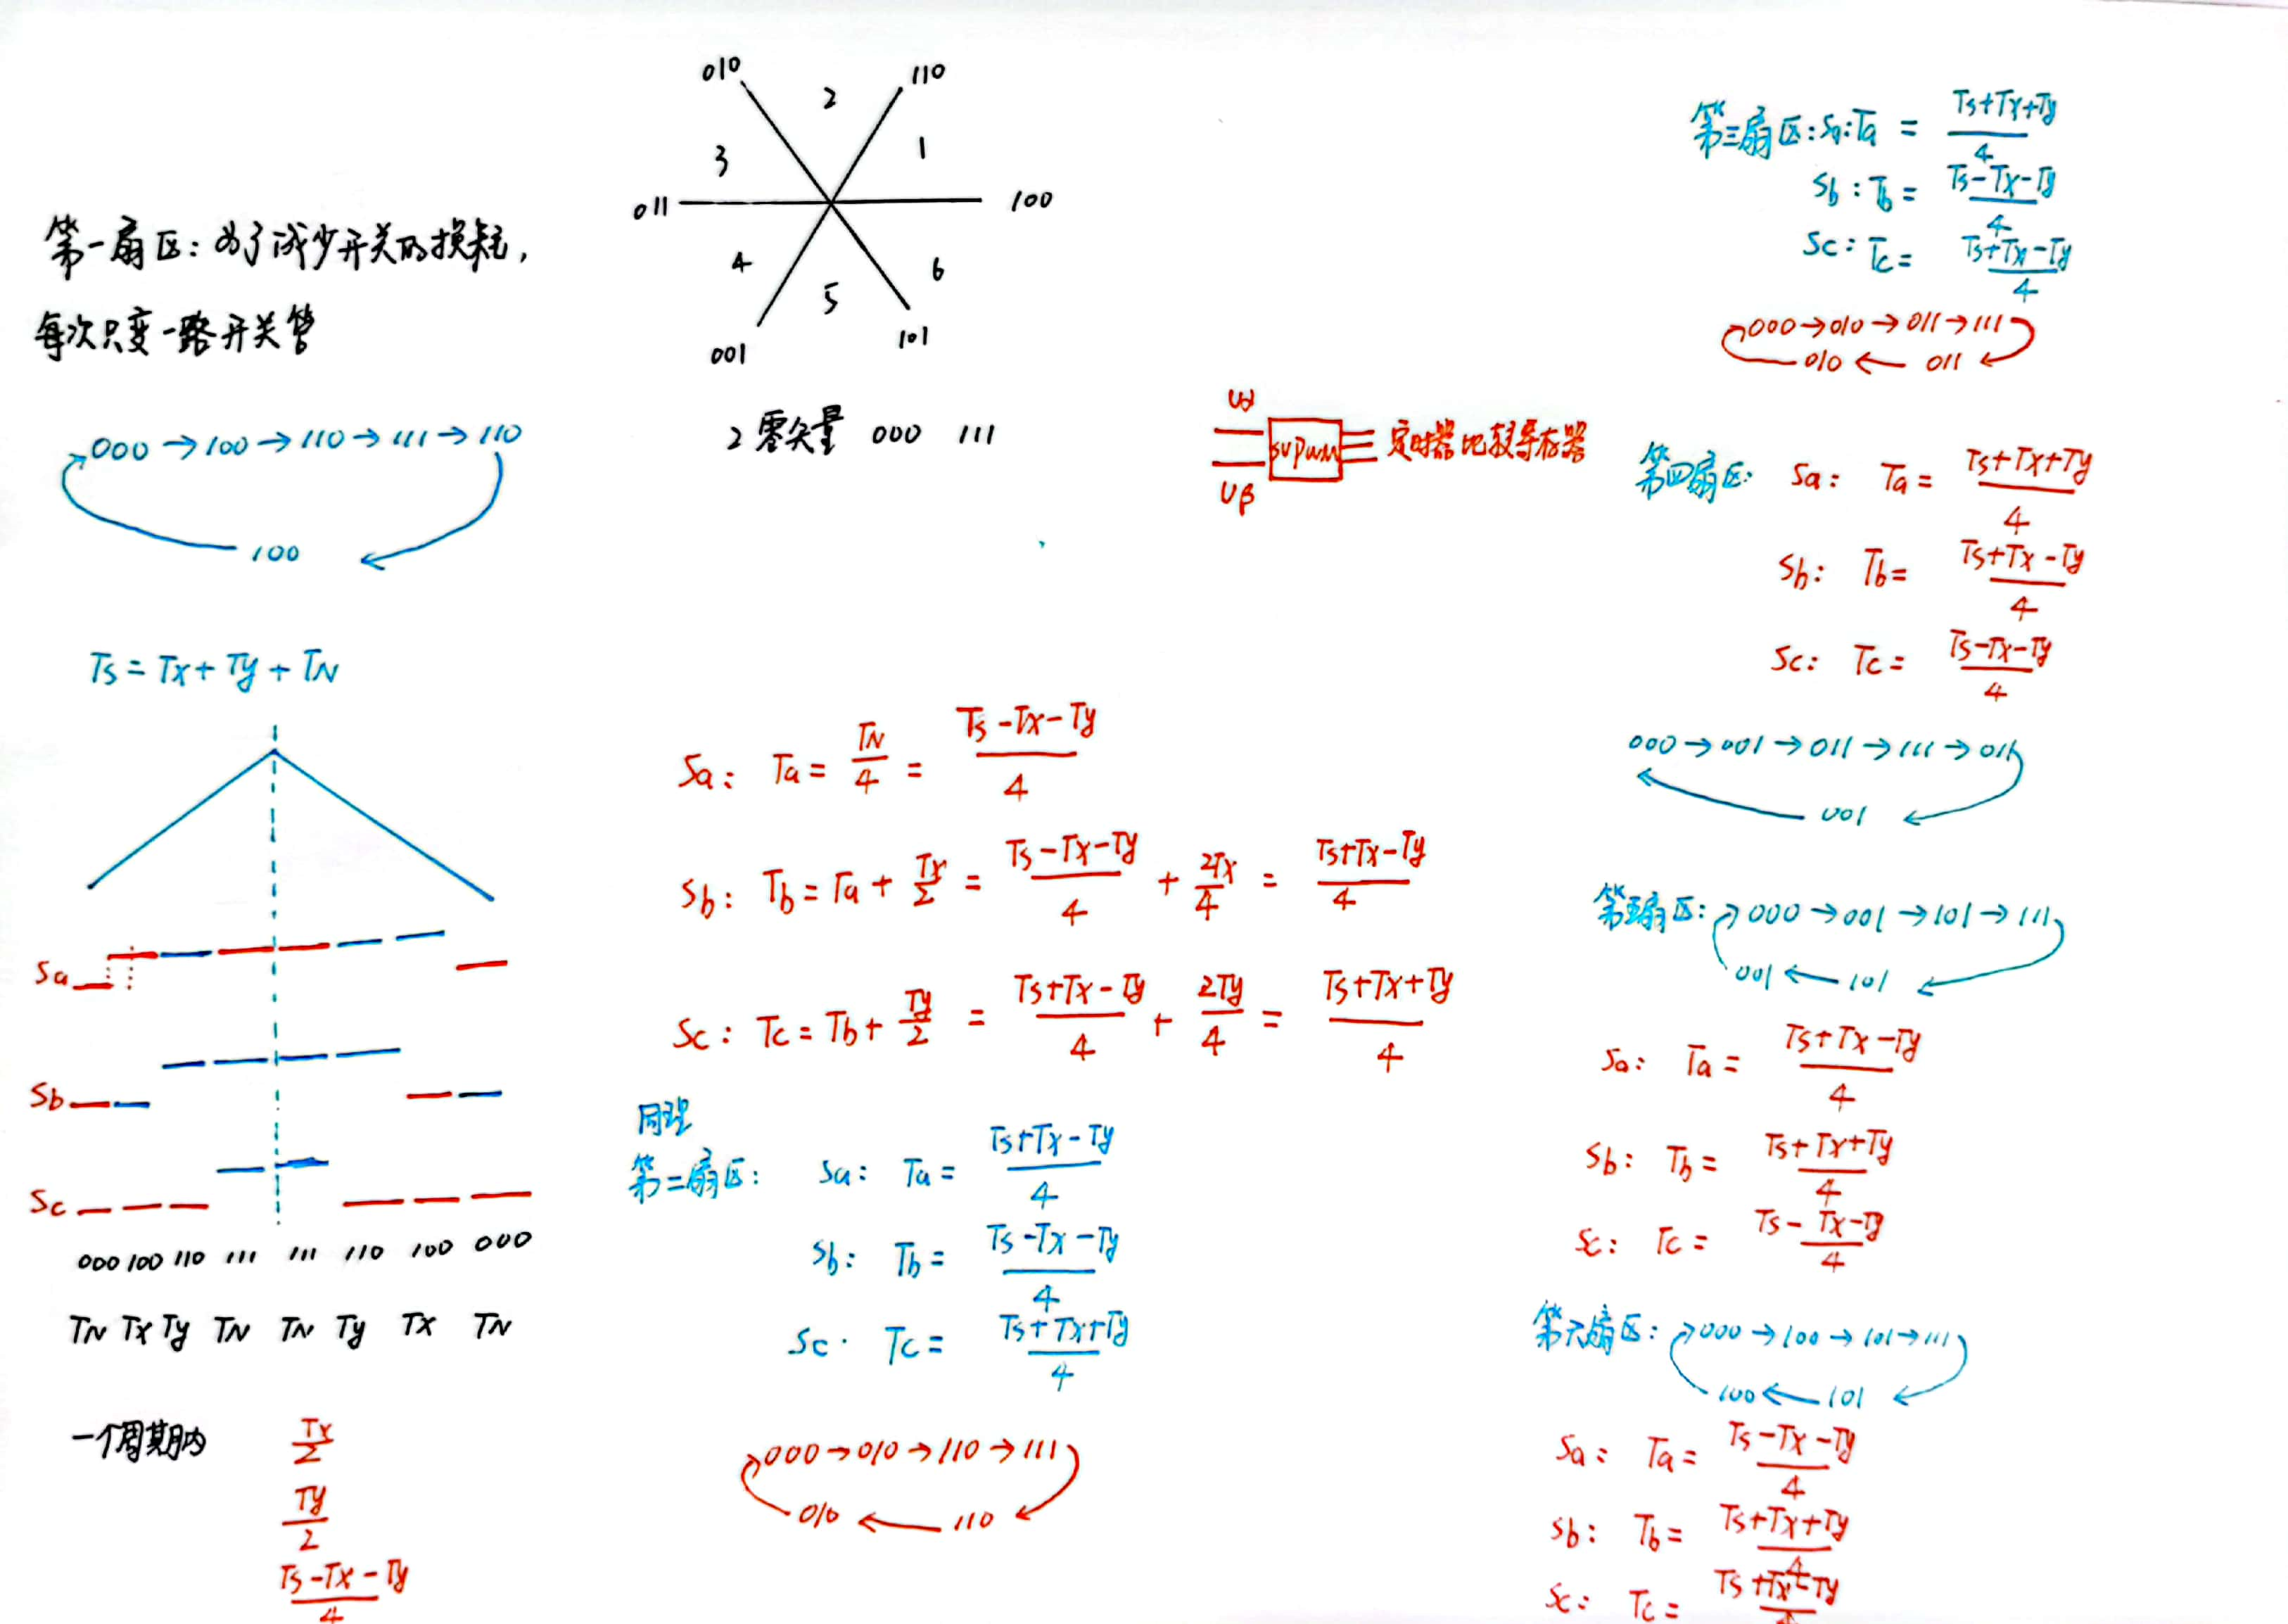 第一扇区：为了减少开关的损耗，
每次只变一路开关管
000→100→110→111→110
100
Ts=Tx+Ty+TN
Sa
Sb
Sc
000 100 110 111 111 110 100 000
TN Tx Ty TN TN Ty Tx TN
一个周期内
Tx/2
Ty/2
Ts-Tx-Ty/4
010
110
2
3
1
011
100
4
6
5
001
101
2零矢量 000 111
Uα
Uβ
SVPWM
定时器比较寄存器
Sa: Ta=TN/4=Ts-Tx-Ty/4
Sb: Tb=Ta+Tx/2=Ts-Tx-Ty/4+2Tx/4=Ts+Tx-Ty/4
Sc: Tc=Tb+Ty/2=Ts+Tx-Ty/4+2Ty/4=Ts+Tx+Ty/4
同理
第二扇区: Sa: Ta=Ts+Tx-Ty/4
Sb: Tb=Ts-Tx-Ty/4
Sc· Tc=Ts+Tx+Ty/4
000→010→110→111
010←110
第三扇区:Sa:Ta=Ts+Tx+Ty/4
Sb:Tb=Ts-Tx-Ty/4
Sc:Tc=Ts+Tx-Ty/4
000→010→011→111
010←011
第四扇区: Sa: Ta=Ts+Tx+Ty/4
Sb: Tb=Ts+Tx-Ty/4
Sc: Tc=Ts-Tx-Ty/4
000→001→011→111→011
001
第五扇区: 000→001→101→111
001←101
Sa: Ta=Ts+Tx-Ty/4
Sb: Tb=Ts+Tx+Ty/4
Sc: Tc=Ts-Tx-Ty/4
第六扇区: 000→100→101→111
100←101
Sa: Ta=Ts-Tx-Ty/4
Sb: Tb=Ts+Tx+Ty/4
Sc: Tc=Ts+Tx-Ty/4